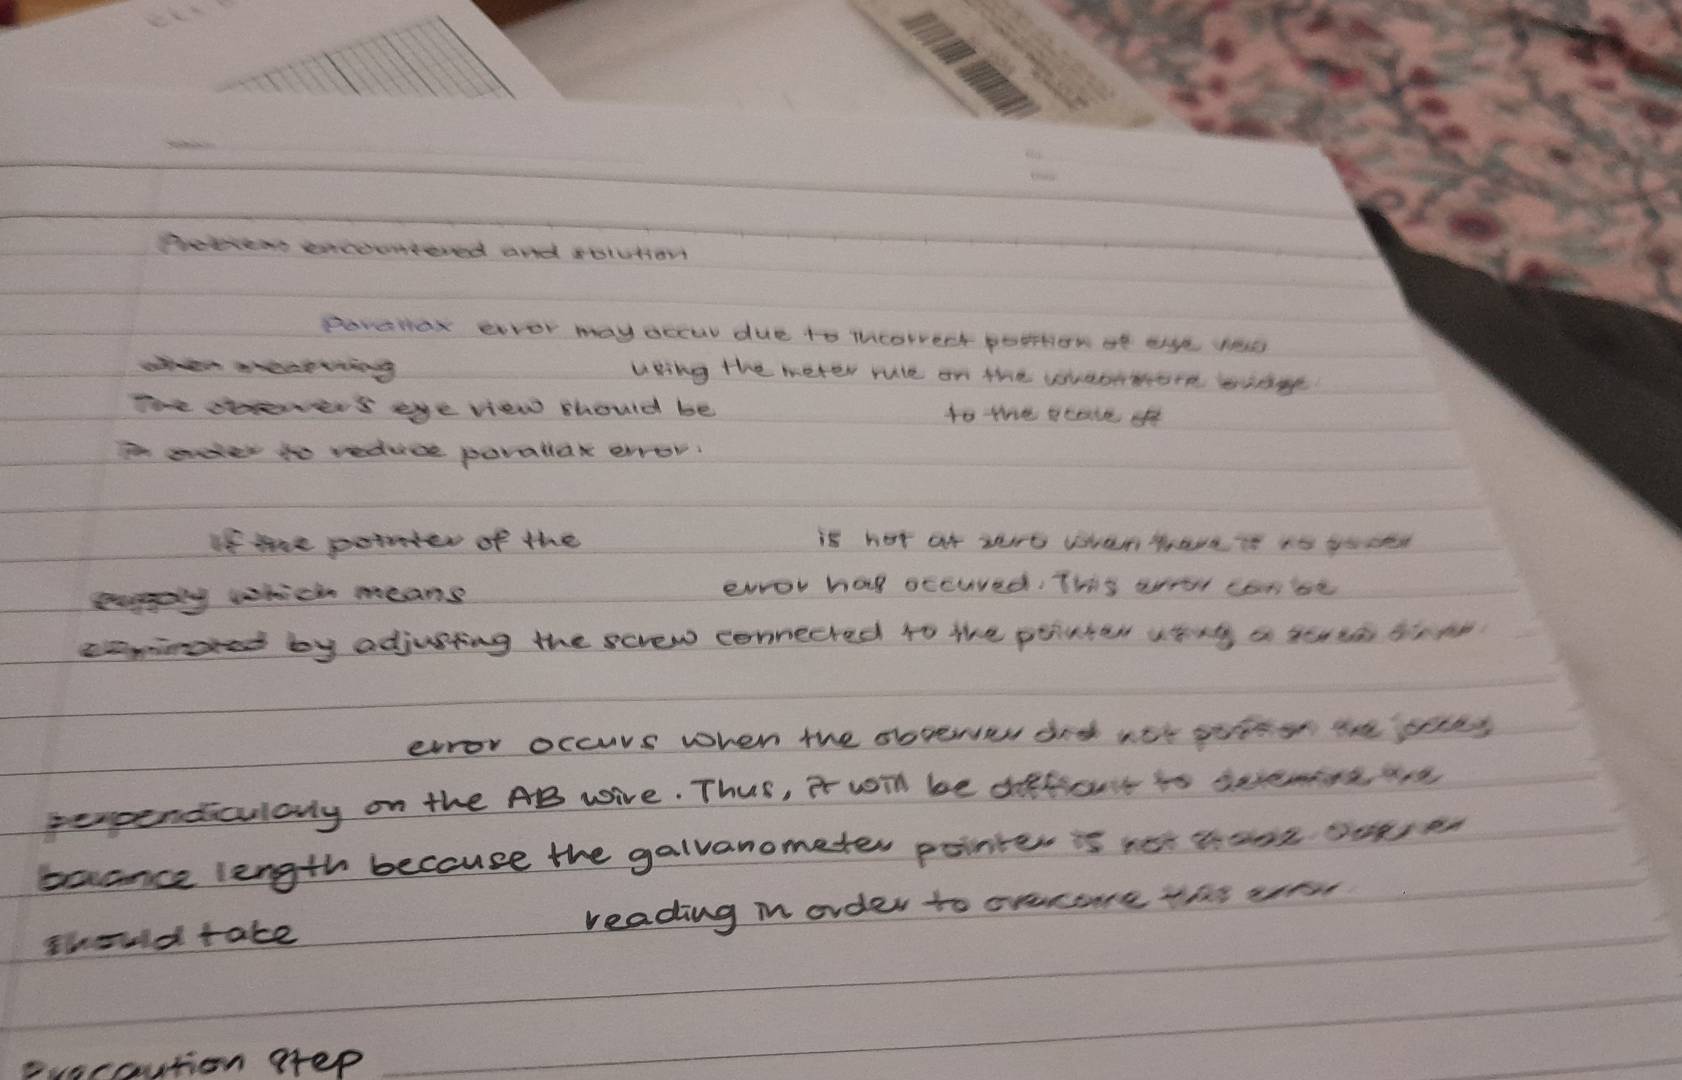 Problems encountered and solution
Parallax error may occur due to incorrect position of eye view
when measuring using the meter rule on the wheatstone bridge.
The observer's eye view should be to the scale of
In order to reduce parallax error.
If the pointer of the is not at zero when there is no power
supply which means error has occured. This error can be
eliminated by adjusting the screw connected to the pointer using a screw driver.
error occurs when the observer did not position the jockey
perpendicularly on the AB wire. Thus, it will be difficult to determine the
balance length because the galvanometer pointer is not
should take reading in order to overcome this error
Precaution step